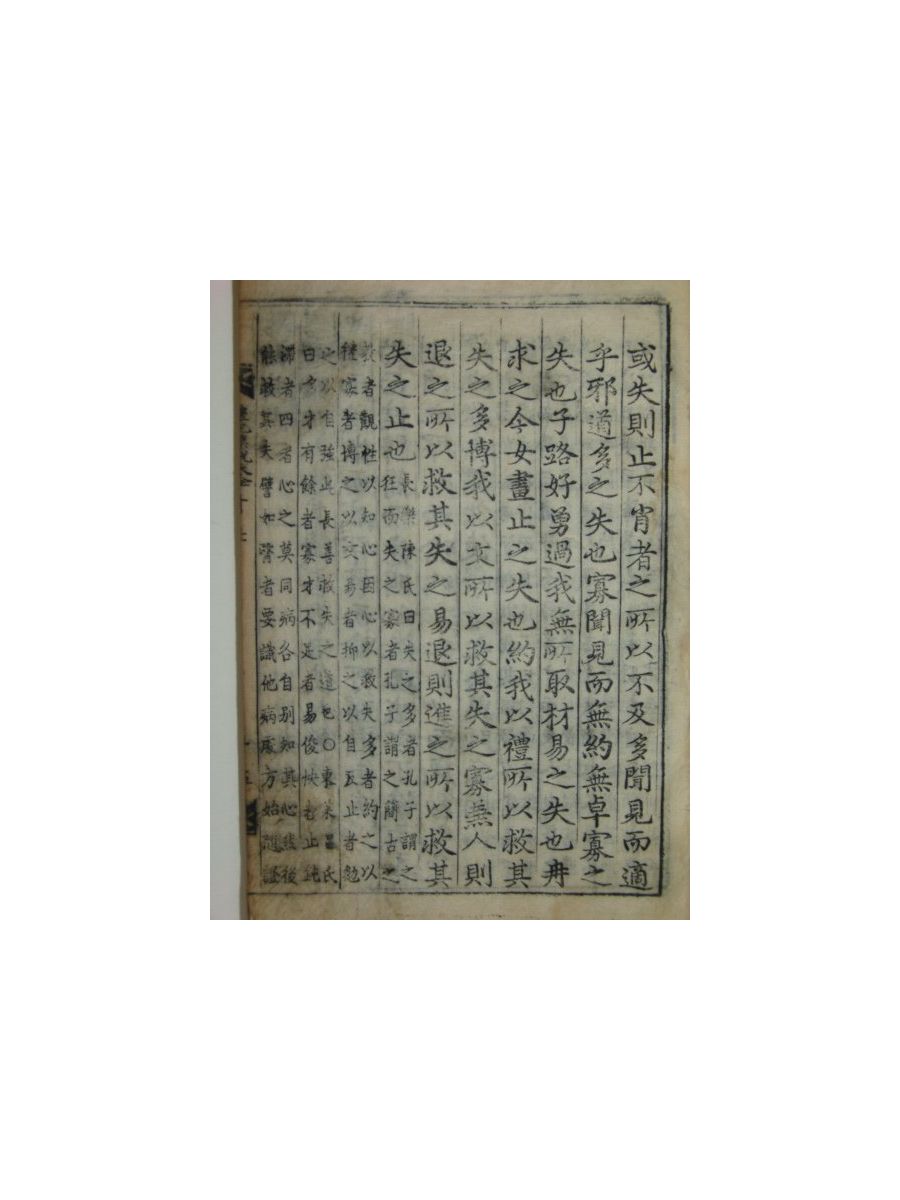 或失則止不肖者之所以不及多聞見而適
乎邪道多之失也寡聞見而無約無卓寡之
失也子路好勇過我無所取材易之失也冉
求之今女畫止之失也約我以禮所以救其
失之多博我以文所以救其失之寡兼人則
退之所以救其失之易退則進之所以救其
失之止也
長樂陳氏曰失之多者孔子謂之
狂而失之寡者孔子謂之簡古之
教者觀性以知心因心以救失多者約之以
禮寡者博之以文易者抑之以自反止者勉
之以自強此長善救失之道也〇東萊呂氏
曰多才有餘者寡才不足者易俊快者止鈍
滯者四者心之莫同病各自別知其心然後
能救其失譬如醫者要識他病處方始隨證